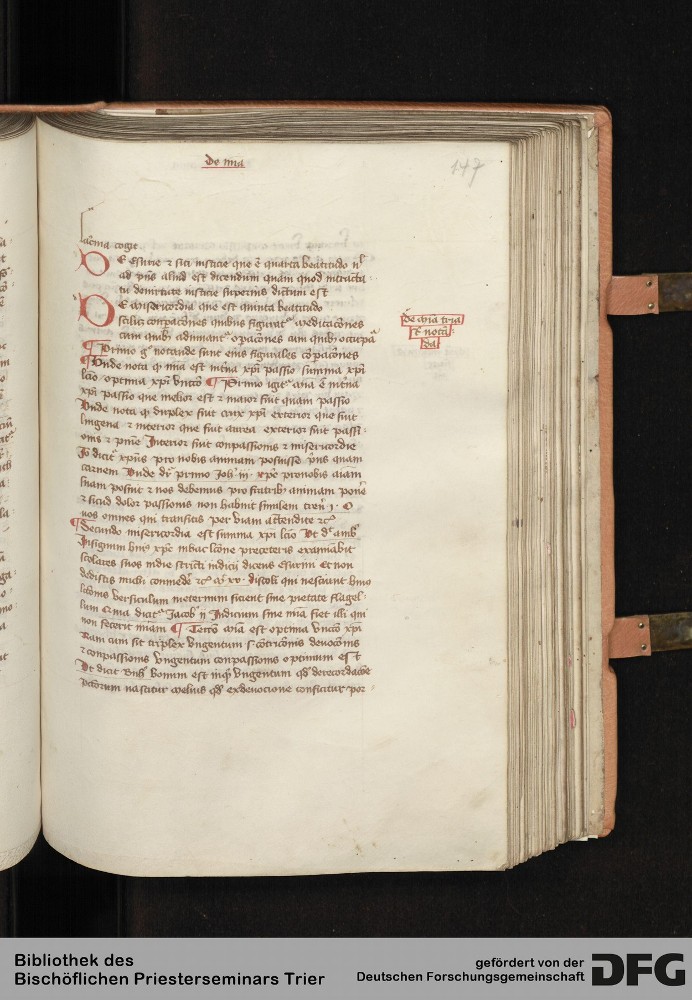 de mia
147
lacrima cogit
DE Esurie et siti iusticie que est quarta beatitudo nl
ad pns aliud est dicendum quam quod intractatu
tu demititate iusticie superius dictum est
DE misericordia que est quinta beatitudo
De mia tria
st nota
da
cum quibz adiuuantur operaciones cum quibz occupa
Primo g notande sunt eius figurales
Unde nota quod mia est interna xpi passio summa xpi
lcio optima xpi unctio Primo igitur mia est interna
xpi passio que melior est et maior fuit quam passio
Unde nota quod duplex fuit crux xpi exterior que fuit
lingnea et interior que fuit aurea exterior fuit passi
onis et pene Interior fuit conpassionis et misericordie
Io dicitur xpus pro nobis animam posuisse pns quam
carnem Unde dr primo Joh iii xpc pro nobis aiam
suam posuit et nos debemus pro fratribz animam ponere
et sicud dolor passionis non habuit similem tren i O
uos omnes qui transitis per viam attendite etc
Secundo misericordia est summa xpi lcio Ut dr
scolares suos in die stricti iudicii dicens Esuriui et non
dedistis michi conmedere etc disscoli qui nesciunt huius
lctionis versiculum in eternum sicient sine pietate flagel
lum dicitur Jacob ii Iudicium sine mia fiet illi qui
non fecerit miam Tercio mia est optima unctio xpi
Nam cum sit triplex Ungentum s contricionis deuocionis
et conpassionis Ungentum conpassionis optimum est
Ut dicit Bnh bonum est inquit Ungentum quod de recordacione
pctorum nascitur melius quod ex deuocione conficitur por
Bibliothek des
Bischöflichen Priesterseminars Trier
gefördert von der
Deutschen Forschungsgemeinschaft
DFG